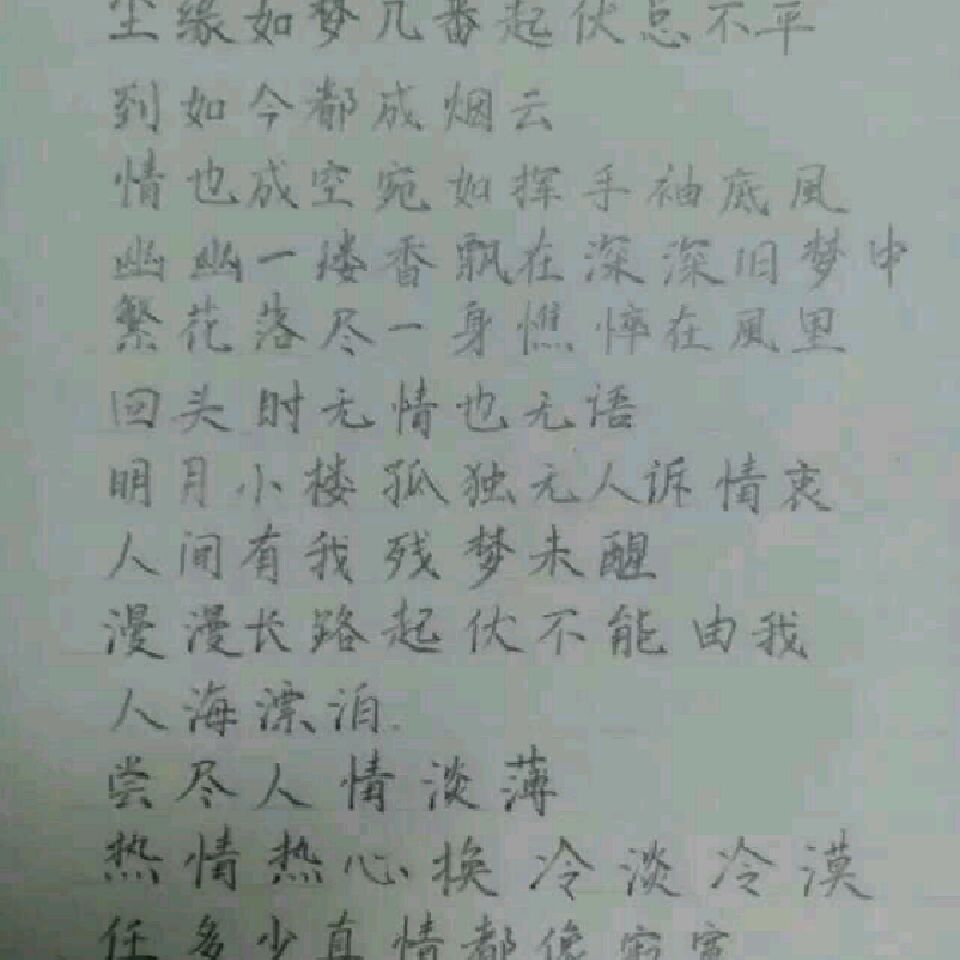 尘缘如梦几番起伏总不平
到如今都成烟云
情也成空宛如挥手袖底風
幽幽一缕香飘在深深旧梦中
繁花落尽一身憔悴在風里
回头时无情也无语
明月小楼孤独无人诉情衷
人间有我残梦未醒
漫漫长路起伏不能由我
人海漂泊
尝尽人情淡薄
热情热心换冷淡冷漠
任多少真情都像寂寞